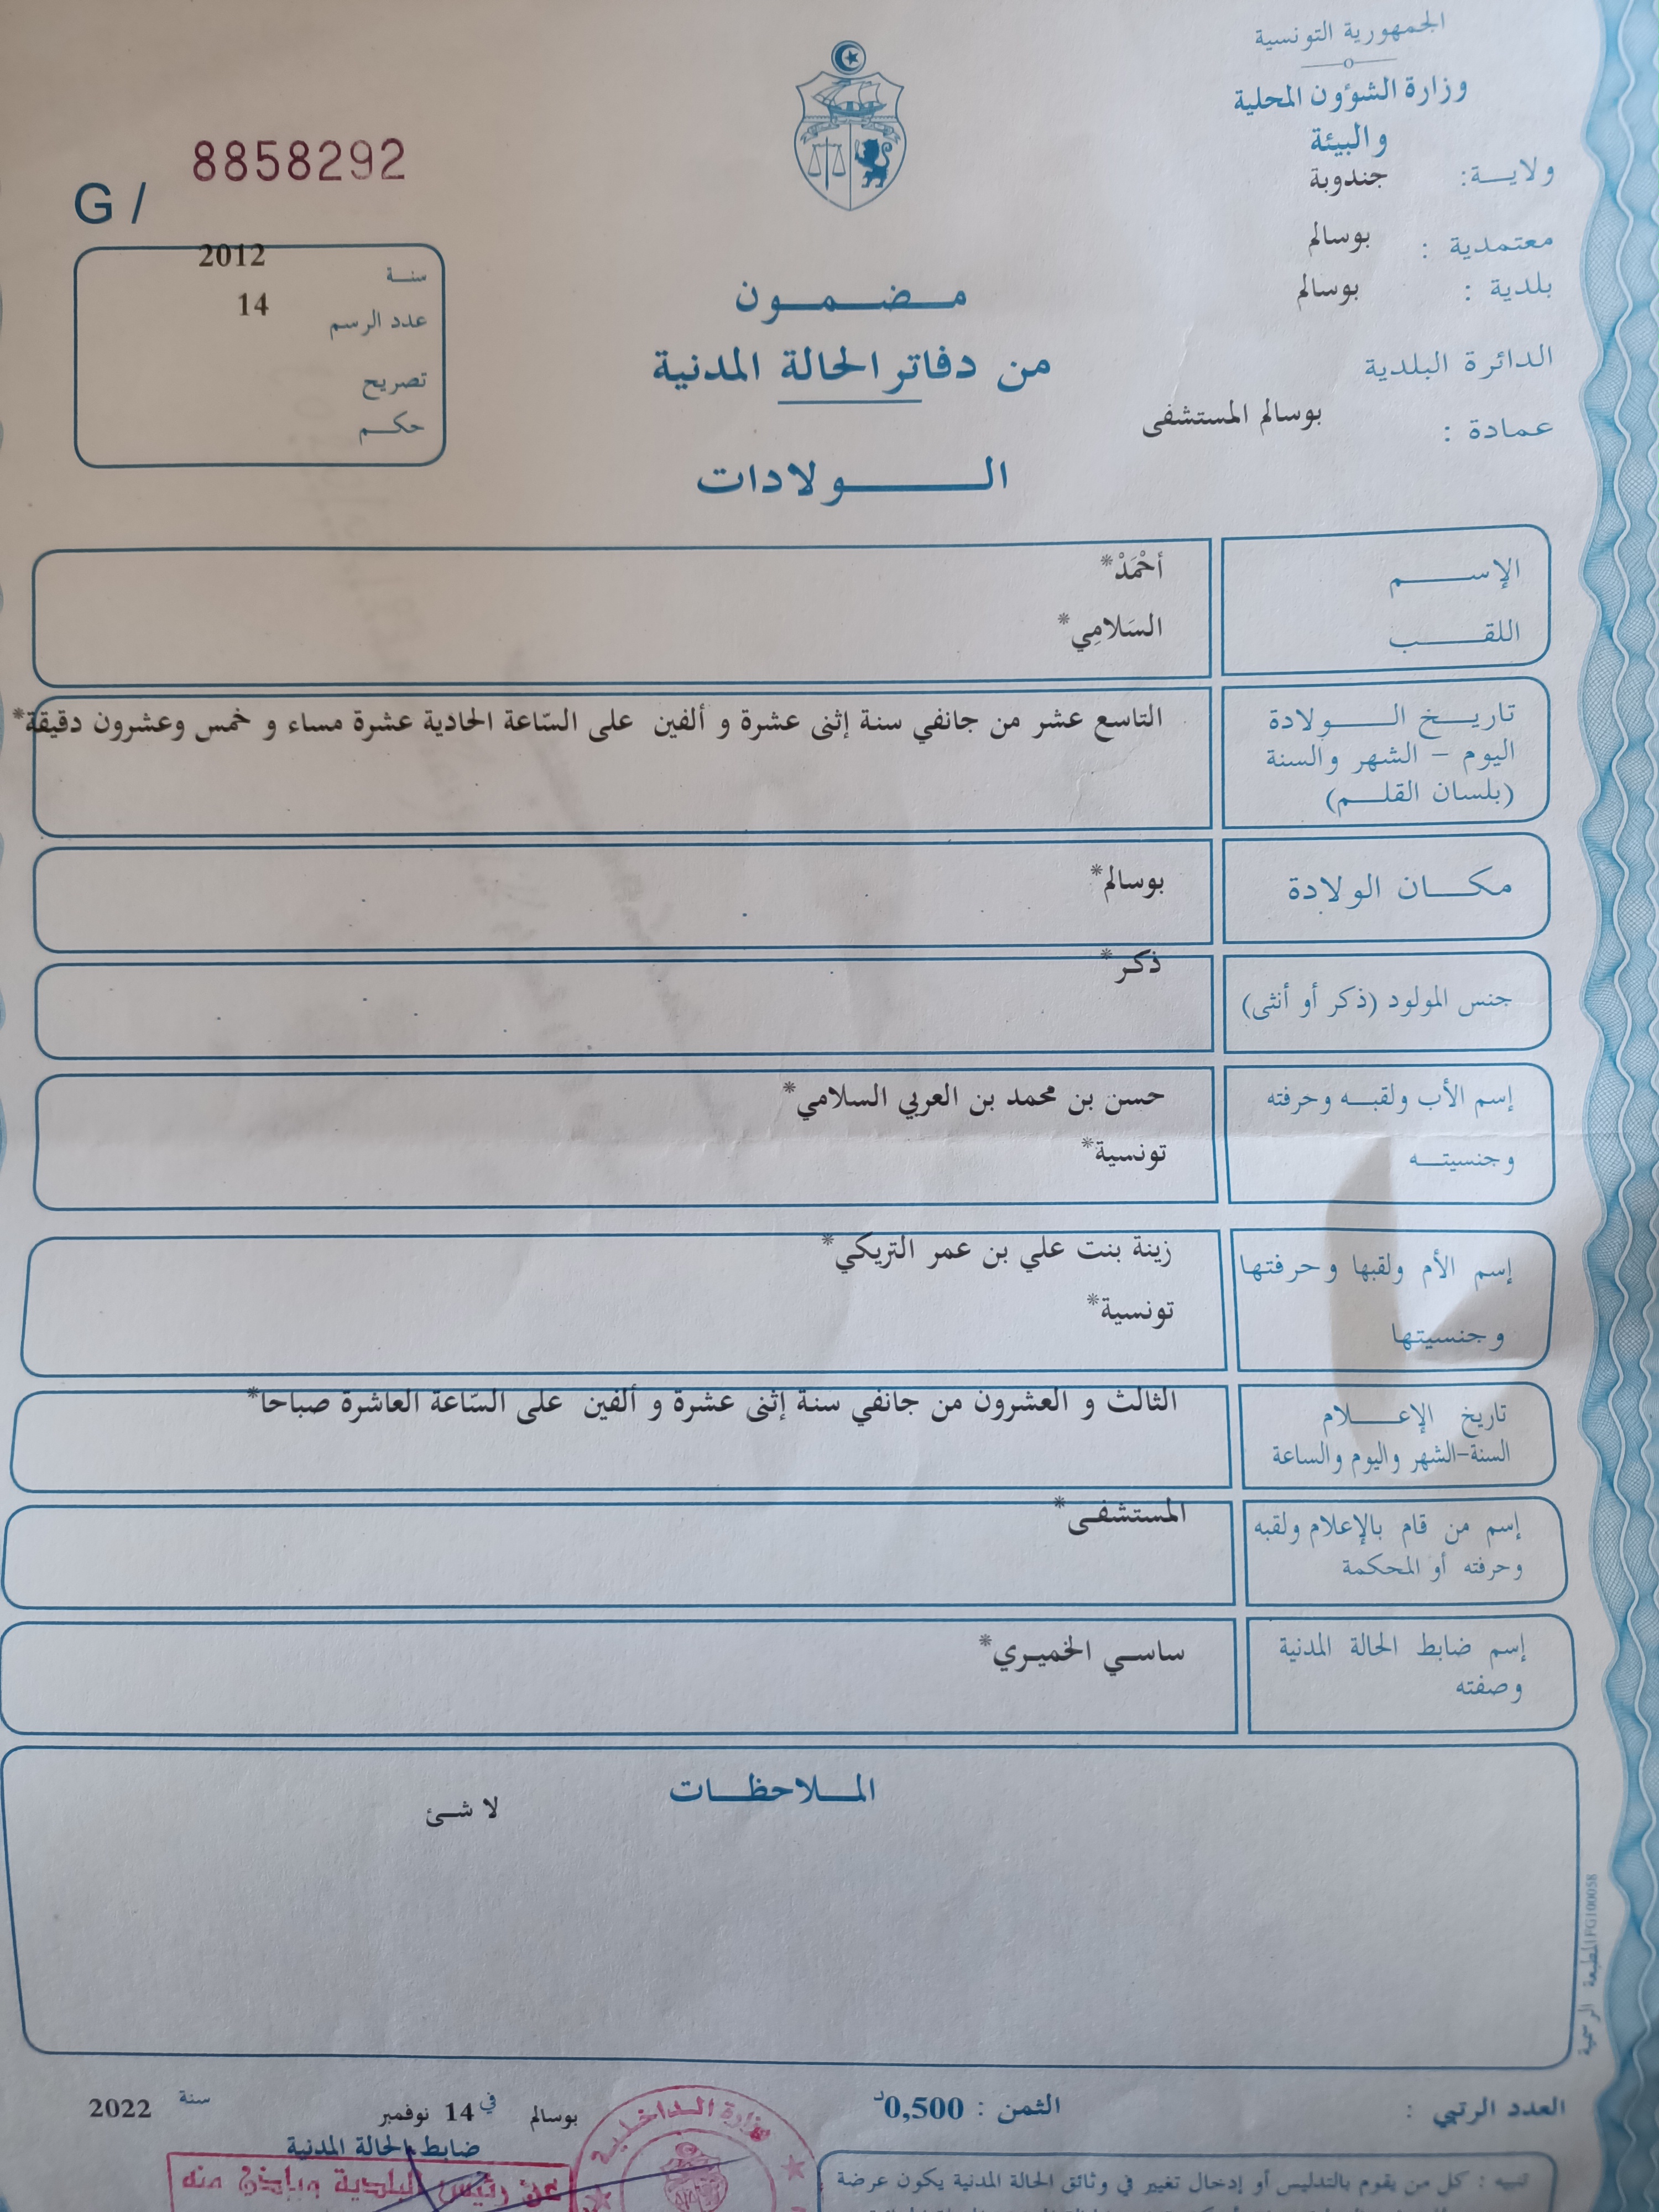 الجمهورية التونسية
وزارة الشؤون المحلية
والبيئة
ولاية: جندوبة
معتمدية : بوسالم
بلدية : بوسالم
الدائرة البلدية
عمادة : بوسالم المستشفى
G / 8858292
سنة 2012
عدد الرسم 14
تصريح
حكم
مضمون
من دفاتر الحالة المدنية
الولادات
الإسم أحْمَدْ*
اللقب السَلامِي*
تاريخ الولادة التاسع عشر من جانفي سنة إثنى عشرة و ألفين على السّاعة الحادية عشرة مساء و خمس وعشرون دقيقة*
اليوم – الشهر والسنة
(بلسان القلم)
مكان الولادة بوسالم*
جنس المولود (ذكر أو أنثى) ذكر*
إسم الأب ولقبه وحرفته حسن بن محمد بن العربي السلامي*
وجنسيته تونسية*
إسم الأم ولقبها وحرفتها زينة بنت علي بن عمر التريكي*
وجنسيتها تونسية*
تاريخ الإعلام الثالث و العشرون من جانفي سنة إثنى عشرة و ألفين على السّاعة العاشرة صباحا*
السنة-الشهر واليوم والساعة
إسم من قام بالإعلام ولقبه المستشفى*
وحرفته أو المحكمة
إسم ضابط الحالة المدنية ساسي الخميري*
وصفته
الملاحظات
لا شئ
المطبعة الرسمية IFG100058
العدد الرتبي :
الثمن : 0,500د
بوسالم في 14 نوفمبر سنة 2022
ضابط الحالة المدنية
عن رئيس البلدية وبإذن منه
وزارة الداخلية
تنبيه : كل من يقوم بالتدليس أو إدخال تغيير في وثائق الحالة المدنية يكون عرضة